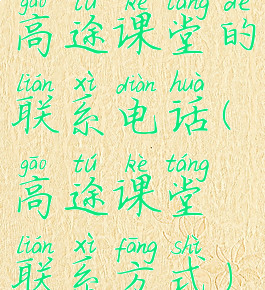 gāo tú kè táng de
高途课堂的
lián xì diàn huà
联系电话(
gāo tú kè táng
高途课堂
lián xì fāng shì
联系方式)